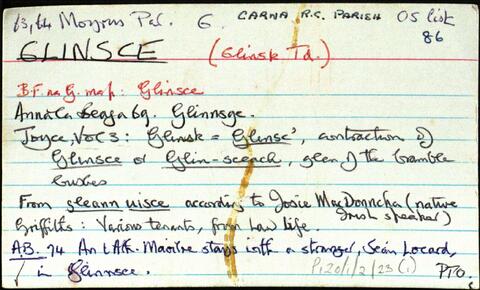 13,14 Moyrus Par. G. CARNA R.C. PARISH OS list
86
GLINSCE (Glinsk Td.)
B.F. na G. map: Glinsce
Annála Beaga 69. Glinnsge.
Joyce, Vol 3: Glinsk = Glinsc', contraction of
Glinsce or Glin-sceach, glen of the bramble
bushes
From gleann uisce according to Josie Mac Donncha (native
Irish speaker)
Griffiths: Various tenants, from Law Life.
A.B. 74 An tAth. Maoilre stays with a stranger, Seán
in Glinnsce.
P120/1/2/23 (1) PTO.